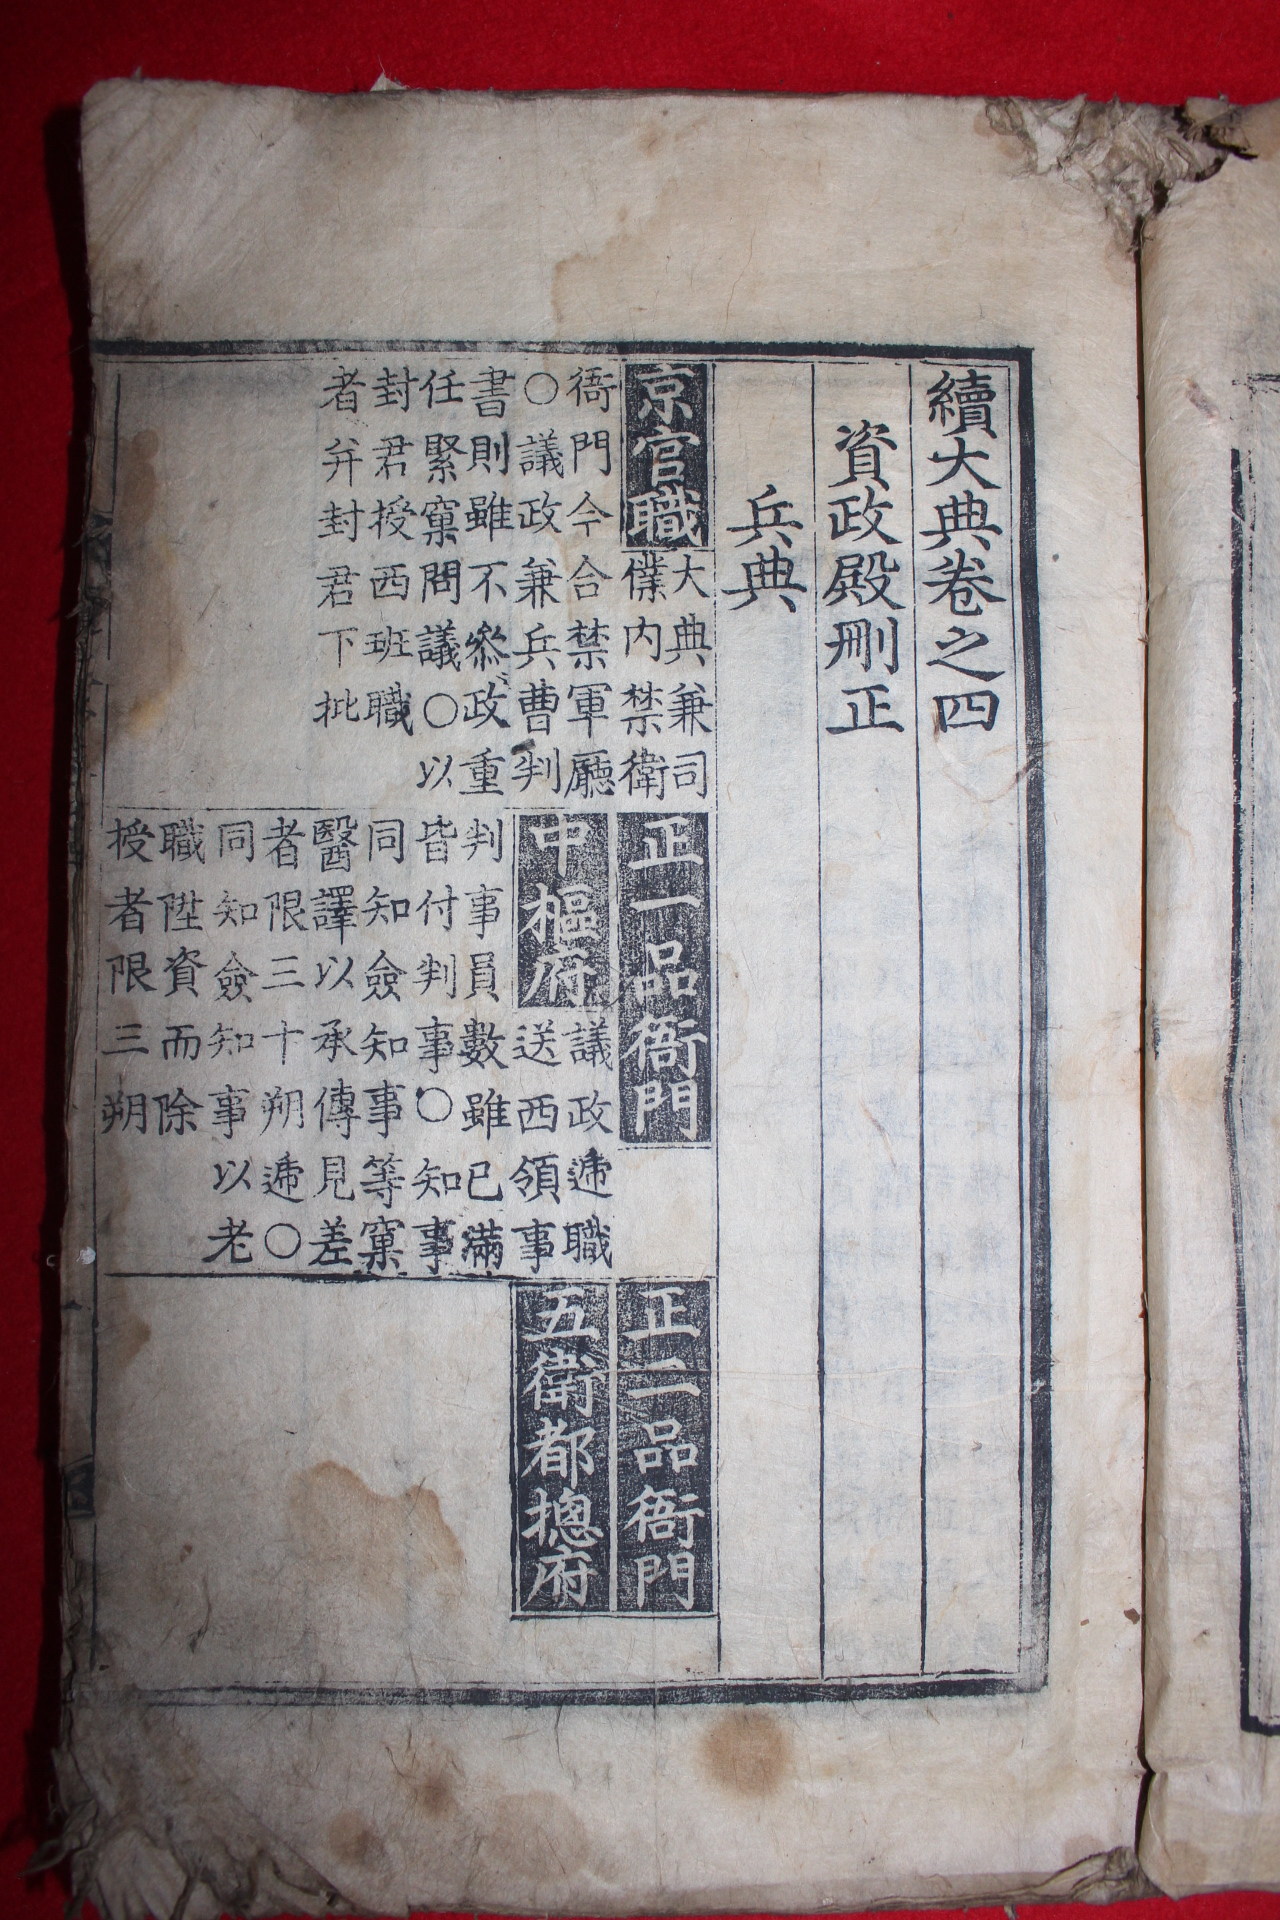 續大典卷之四
資政殿刪正
兵典
京官職
大典兼司
僕內禁衛
衙門今合禁軍廳
○議政兼兵曹判
書則雖不叅政重
任緊窠問議○以
封君授西班職
者并封君下批
正一品衙門
中樞府
議政遞職
送西領事
判事員數雖已滿
皆付判事○知事
同知僉知事等窠
醫譯以承傳見差
者限三十朔遞○
同知僉知事以老
職陞資而除
授者限三朔
正二品衙門
五衛都摠府